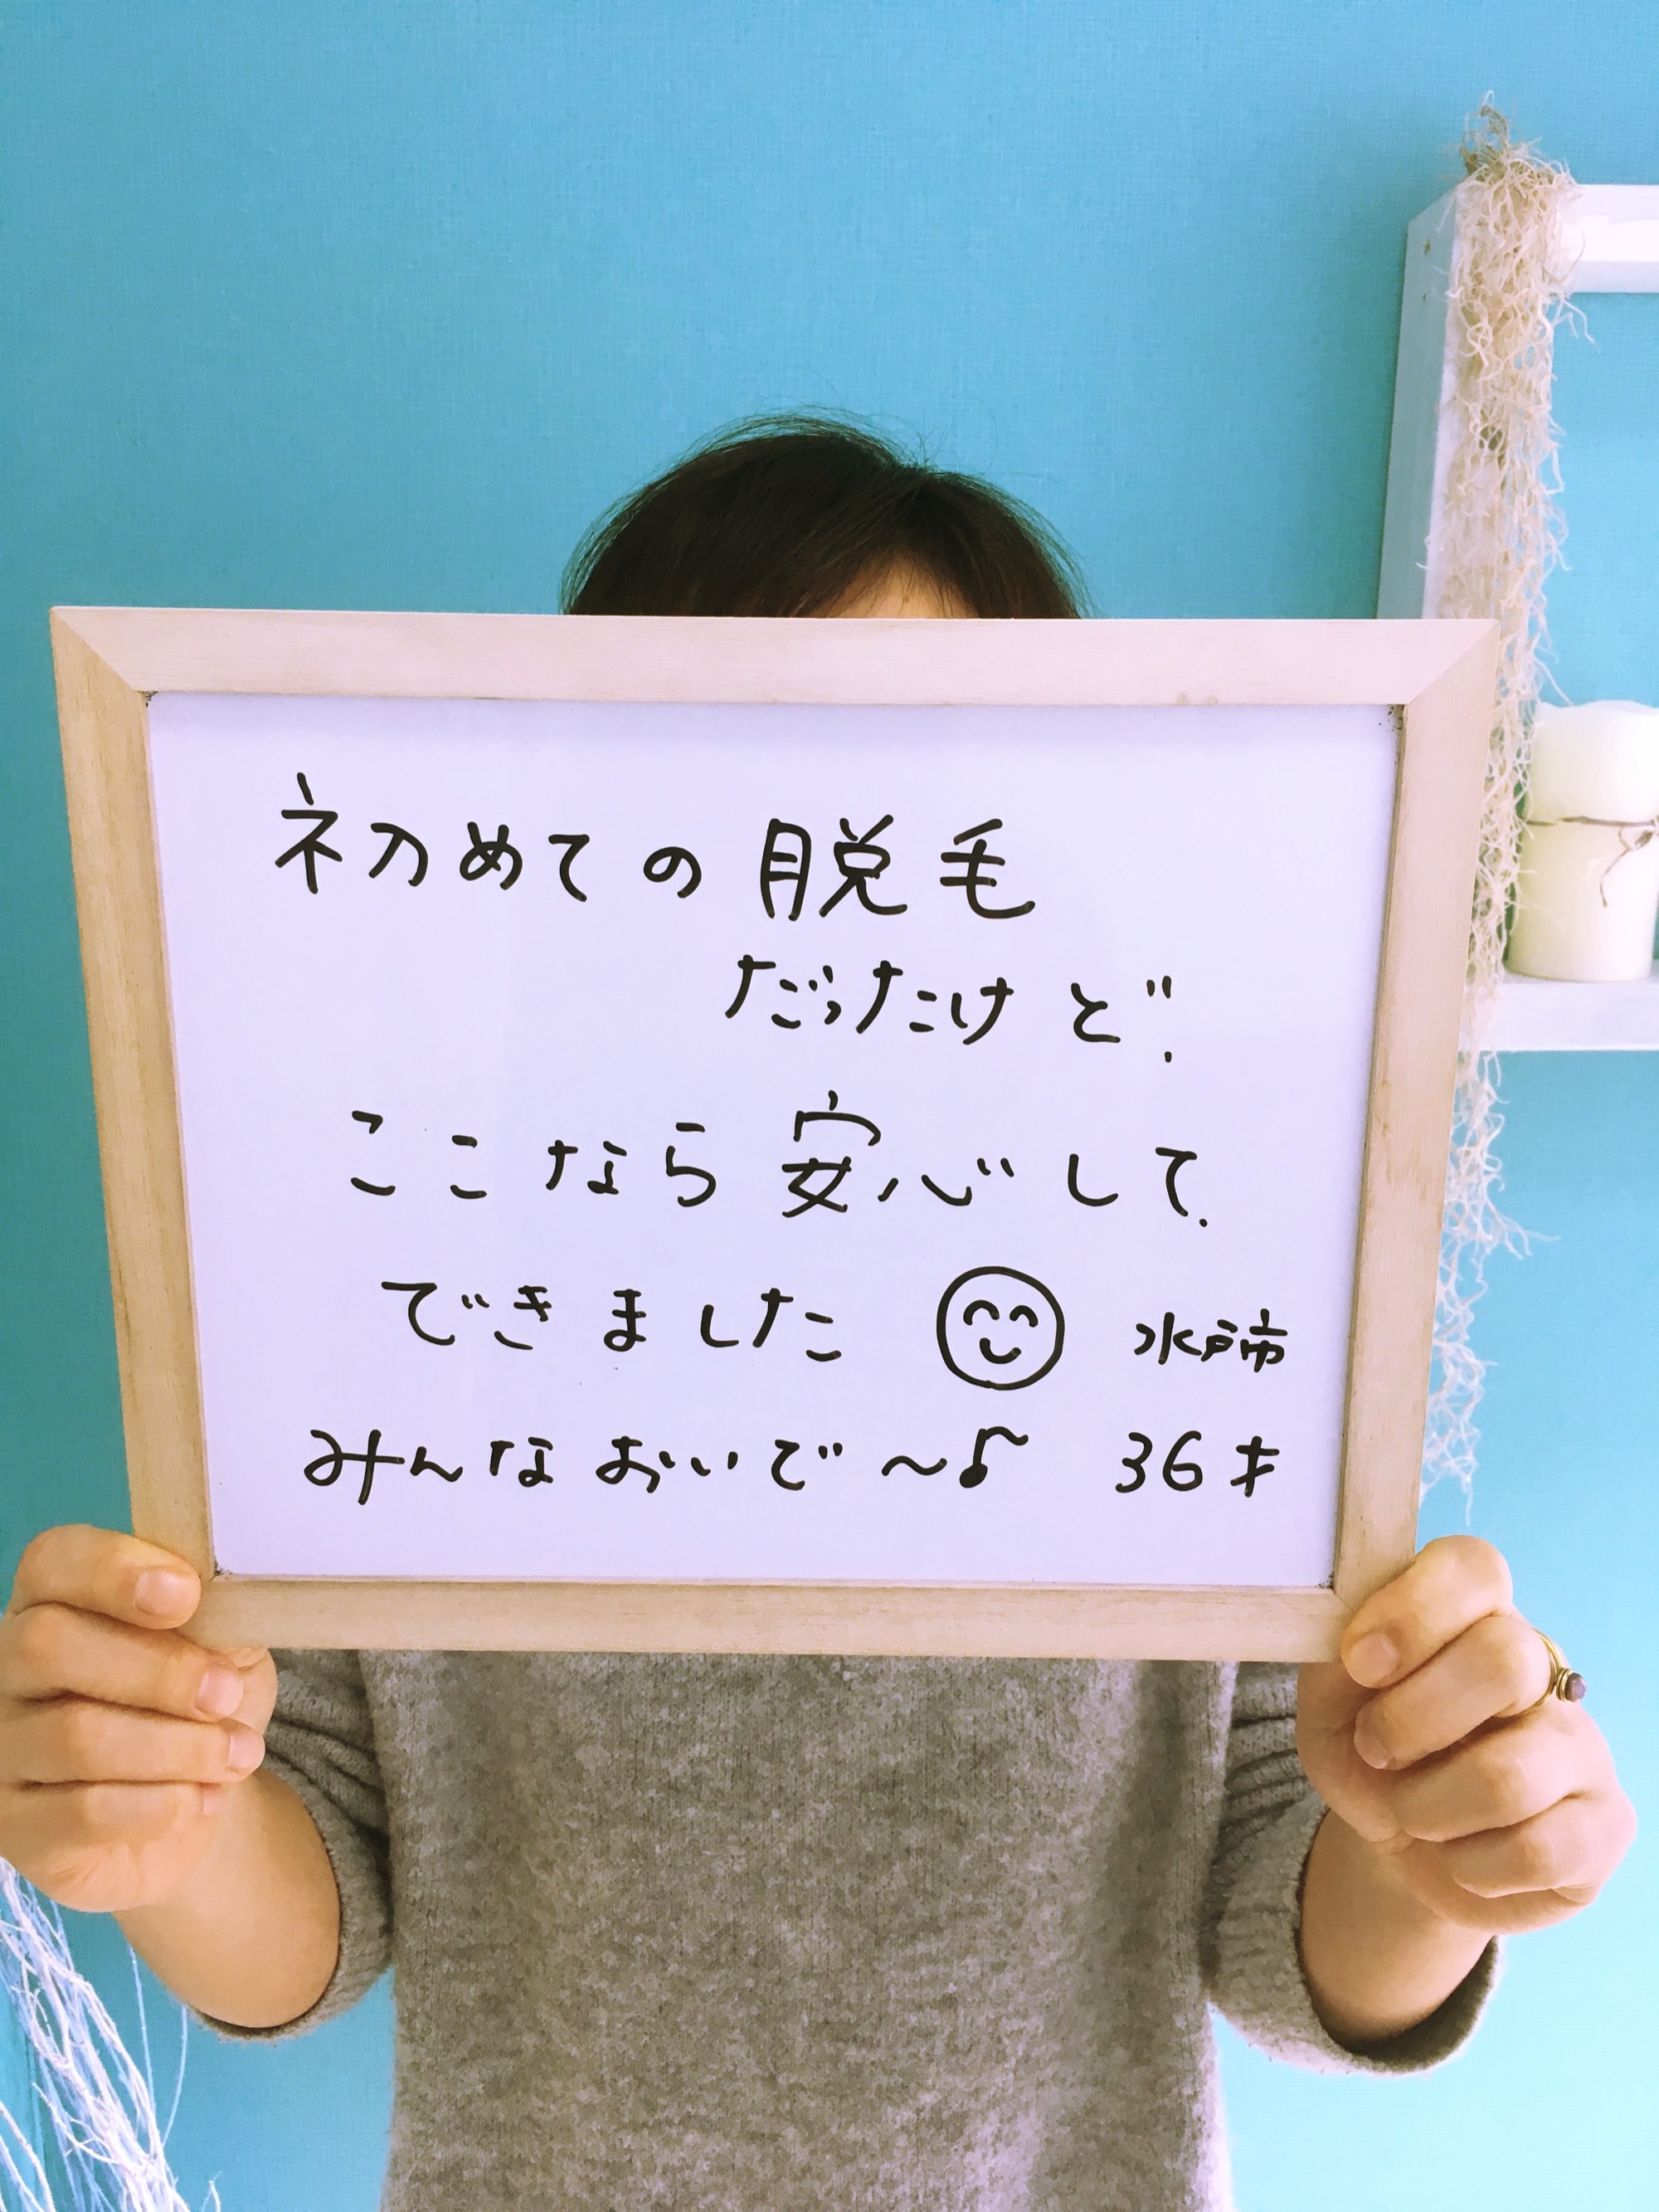 初めての脱毛
だったけど、
ここなら安心して、
できました 水戸市
みんなおいで〜♪ 36才